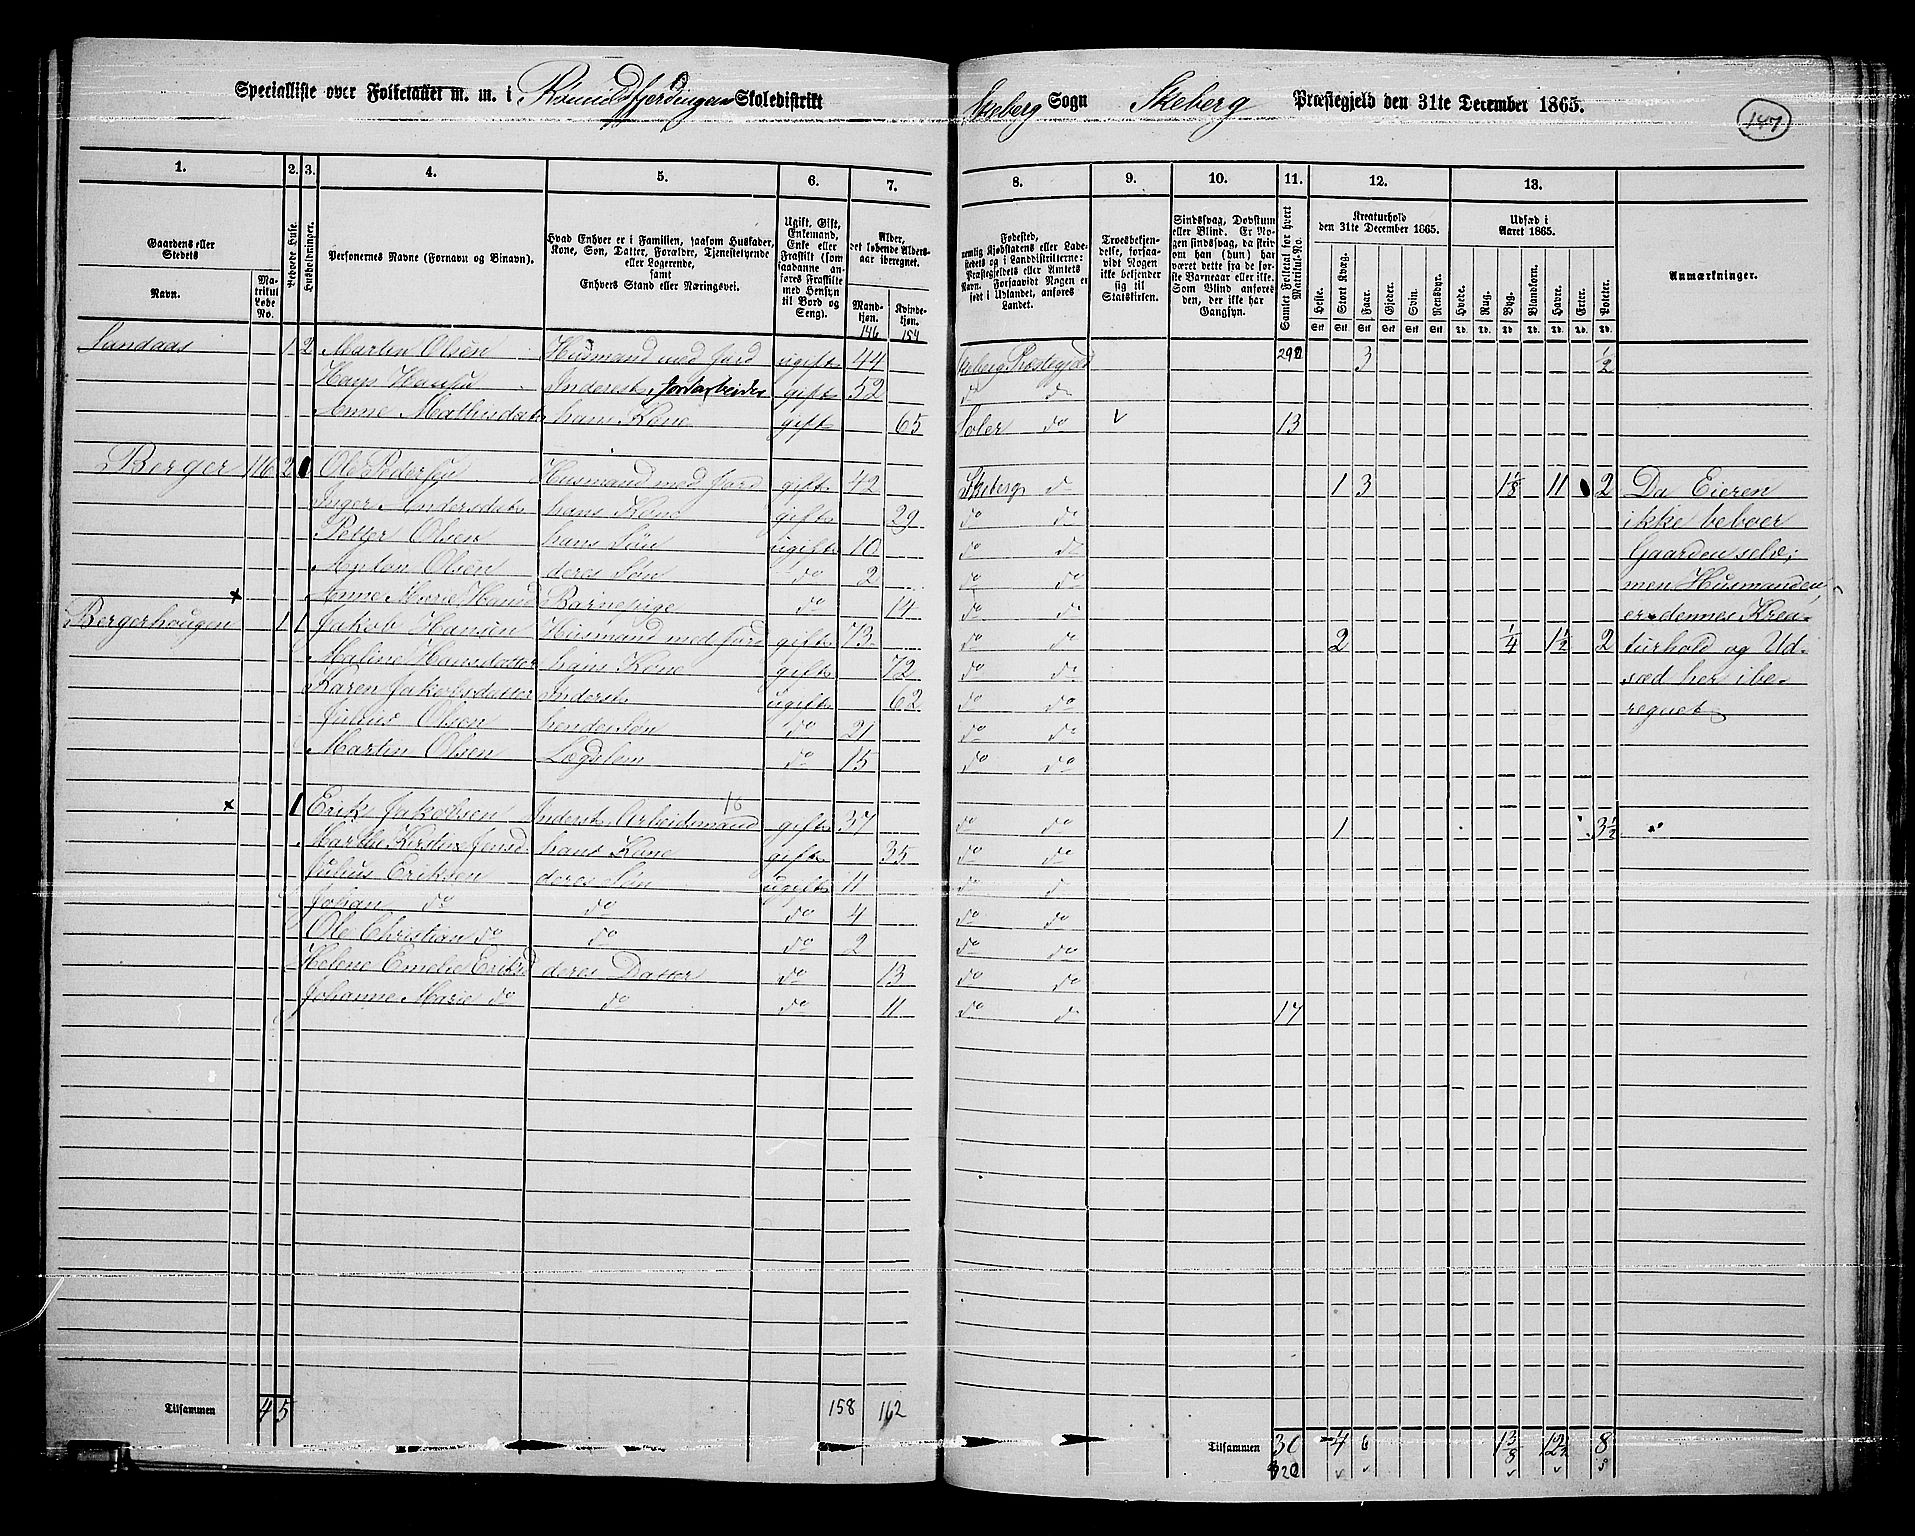 Specialliste over Folketallet m. m. i Rømildsfjerdingen Skoledistrikt Skeberg Sogn Skeberg Præstegjeld den 31te December 1865.
147
1. 2. 3. 4. 5. 6. 7. 8. 9. 10. 11. 12. 13.
Gaardens eller Stedets Navn. Matrikul Løbe No. Beboede Huse. Husholdninger. Personernes Navne (Fornavn og Binavn). Hvad Enhver er i Familien, saasom Husfader, Kone, Søn, Datter, Forældre, Tjenestetyende eller Logerende, samt Enhvers Stand eller Næringsvei. Ugift, Gift, Enkemand, Enke eller Fraskilt (som saadanne anføres Fraskilte med Hensyn til Bord og Seng). Alder, det løbende Alders-aar iberegnet. Mandkjøn. Kvindekjøn.
Fødested, nemlig Kjøbstadens eller Ladestedets og i Landdistrikterne: Præstegjeldets eller Amtets Navn. Forsaavidt Nogen er født i Udlandet, anføres Landet. Troesbekjendelse, forsaavidt Nogen ikke bekjender sig til Statskirken. Sindssvag, Døvstum eller Blind. Er Nogen sindssvag, da skrives om han (hun) har været dette fra de første Barneaar eller ikke. Som Blind anføres den, der ikke har Gangsyn. Samlet Folketal for hvert Matrikul-No. Kreaturhold den 31te December 1865. Heste. Stort Kvæg. Faar. Gjeder. Svin. Rensdyr. Udsæd i Aaret 1865. Hvede. Rug. Byg. Blandkorn. Havre. Erter. Poteter. Anmærkninger.
146 154
Sandaas 1 2 Martin Olsen Husmand med Jord ugift 44 Skeberg Præstegjæld 290 3 1/2
Hans Hansen Inderst, Jordarbeider gift 52 do do
Anne Mathisdatr hans Kone gift 65 Soler do 13
Berger 116 2 Ole Pedersen Husmand med Jord gift 42 Skeberg do 1 3 1/8 11 2 Da Eieren
Inger Andersdatr hans Kone gift 29 do do ikke beboer
Petter Olsen hans Søn ugift 10 do do Gaarden selv;
Anton Olsen deres Søn do 2 do do men Husmanden
Anne Marie Hansd Barnepige do 14 do do er dennes Krea-
Bergerhougen 1 1 Jakob Hansen Husmand med Jord gift 73 2 1/4 1 1/2 2 turhold og Ud-
Maline Hansdatter hans Kone gift 72 do do sæd her ibe-
Karen Jakobsdatter Inderst ugift 62 do do regnet
Julius Olsen hendes Søn do 21 do do
Martin Olsen Logslem do 15 do do
1 Erik Jakobsen Inderst Arbeidsmand gift 37 do do 1 3 1/2
Marthe Kirstine Jensd. hans Kone gift 35 do do
Julius Eriksen deres Søn ugift 11 do do
Johan do do do 4 do do
Ole Christian do do do 2 do do
Helene Emelie Eriksd deres Datter do 13 do do
Johanne Marie do do do 11 do do 17
Tilsammen 4 5 158 162 Tilsammen 30 4 6 1 3/8 12 1/2 8
320